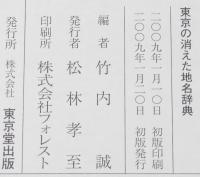 東京の消えた地名辞典
二〇〇九年一月一〇日　初版印刷
二〇〇九年一月二〇日　初版発行
編者　竹内　誠
発行者　松林孝至
印刷所　株式会社フォレスト
発行所　株式会社　東京堂出版